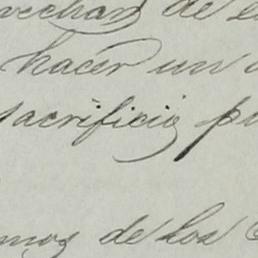 vechan de
hacer un
sacrificio
de los